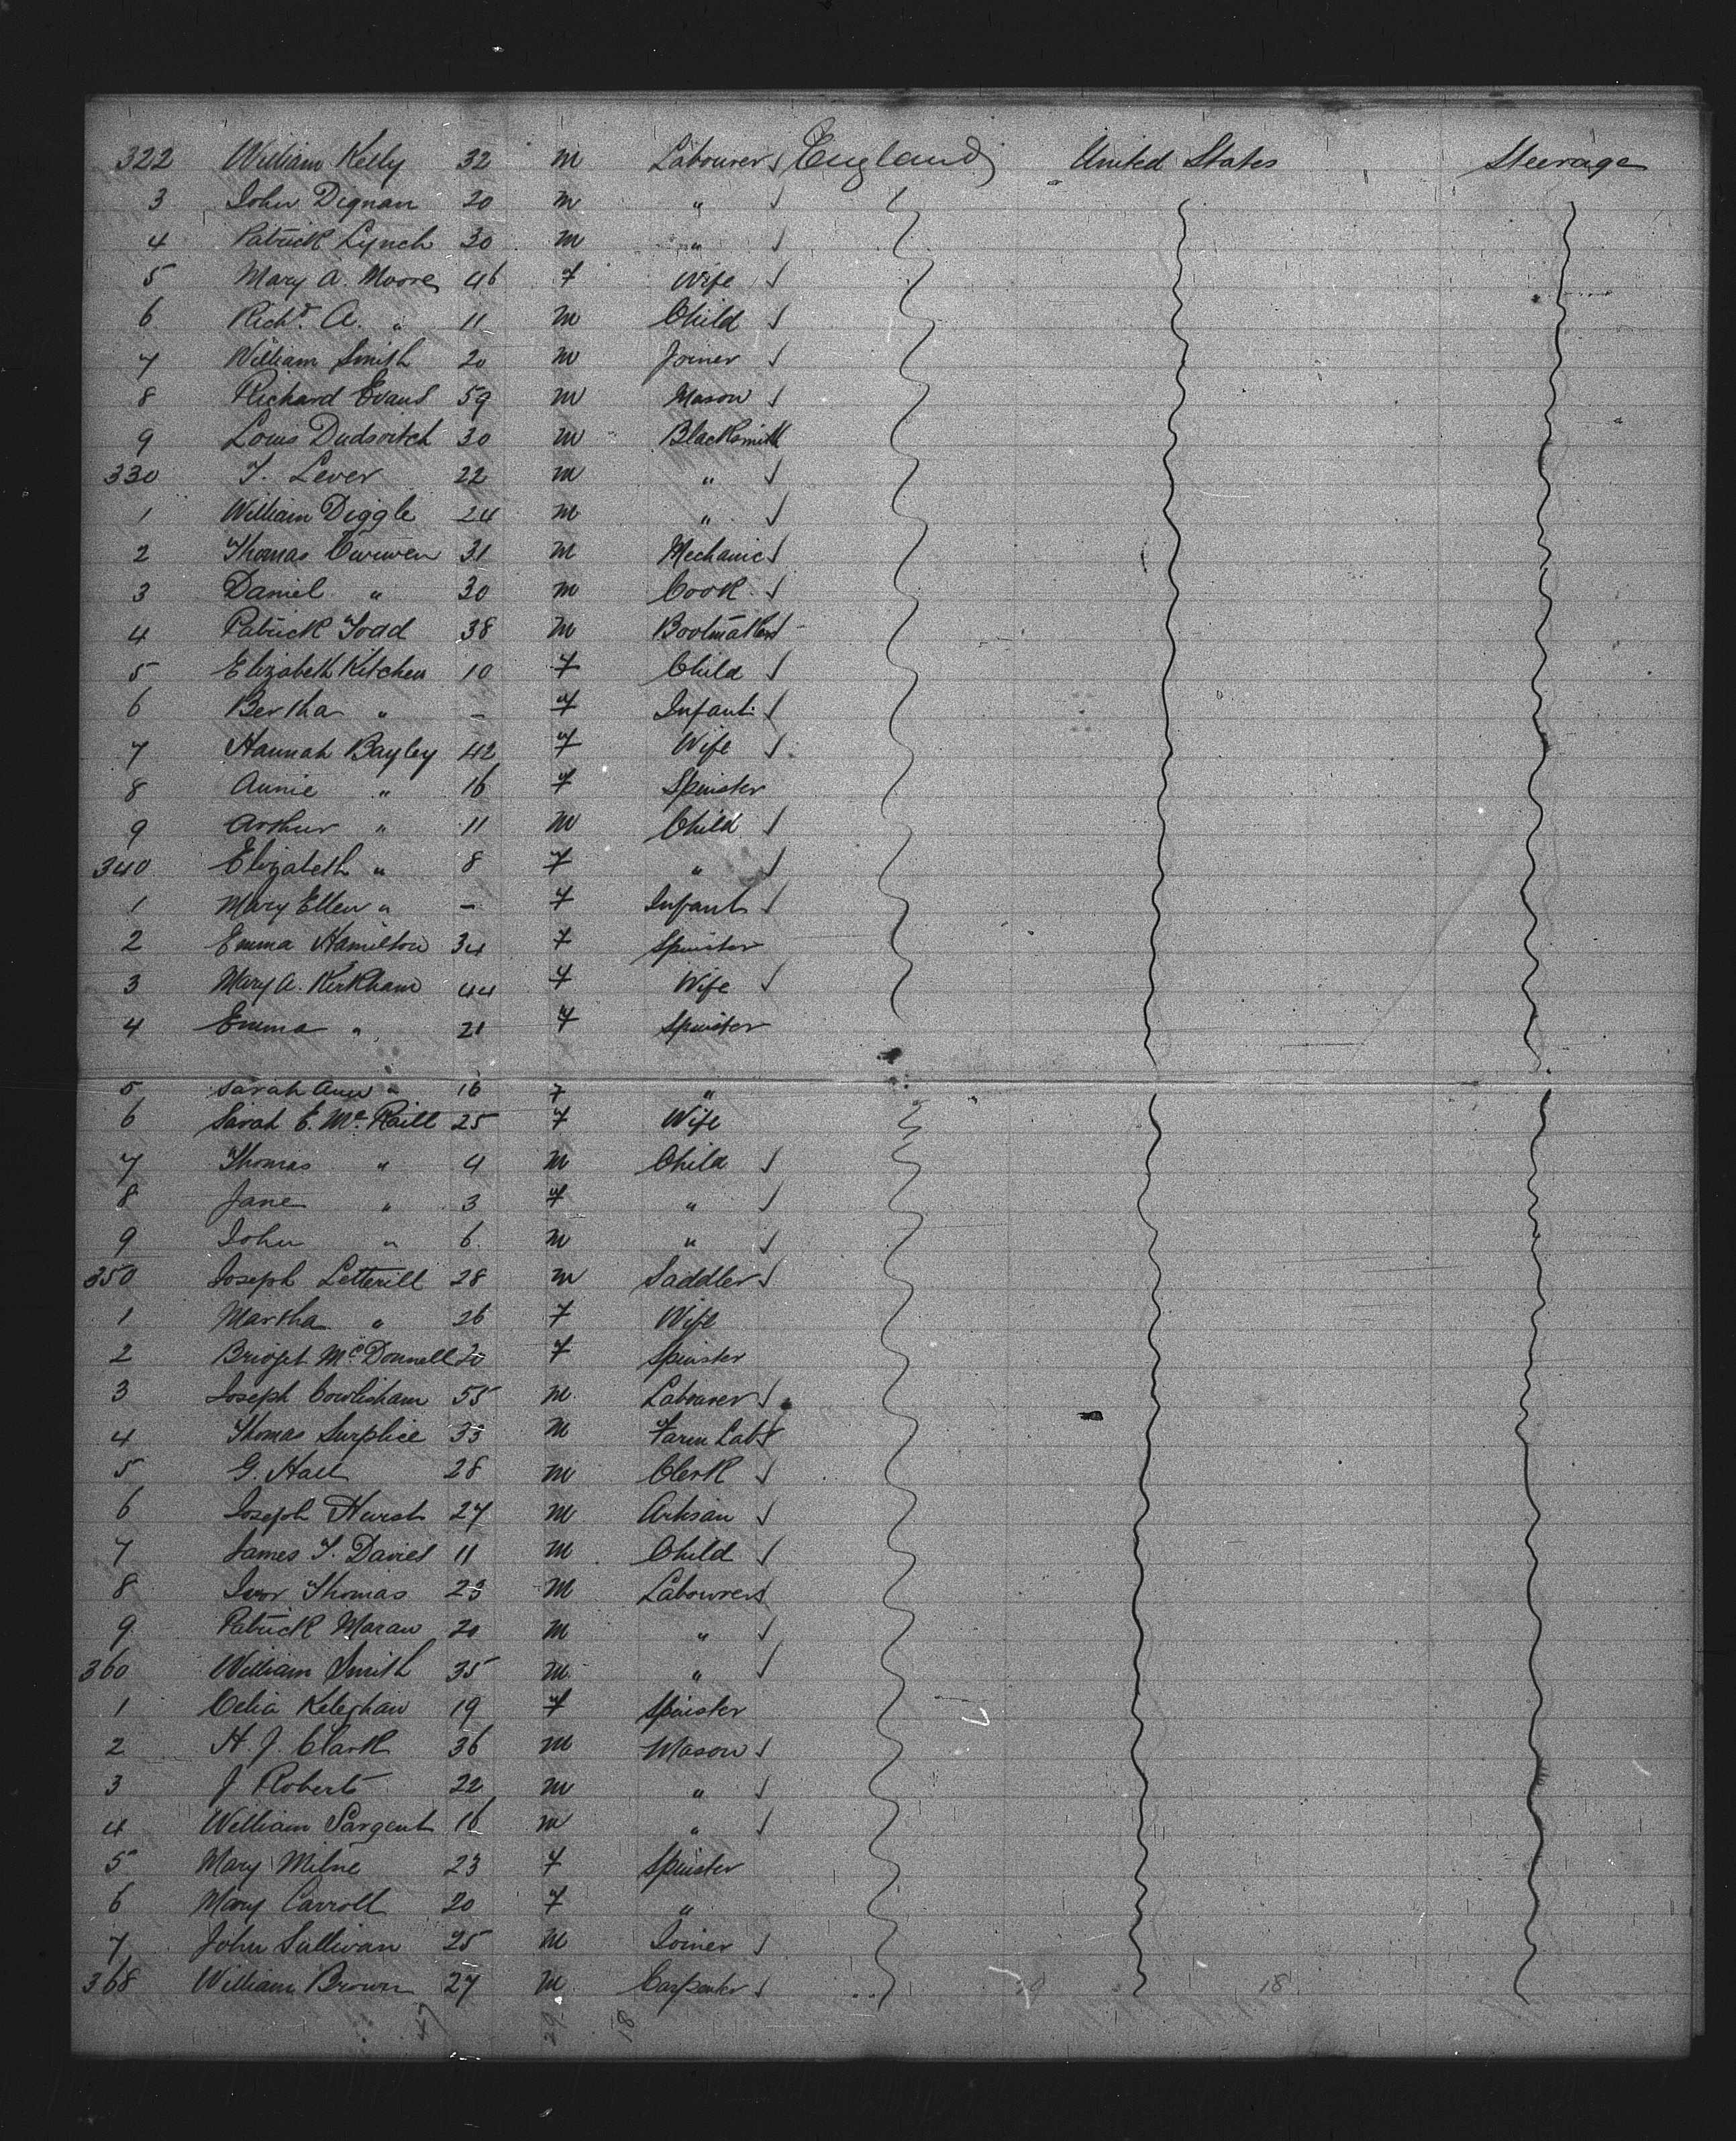 322 William Kelly 32 m Labourer England United States Steerage
3 John Dignan 20 m "
4 Patrick Lynch 30 m "
5 Mary A. Moore 46 f Wife
6 Richd. A. " 11 m Child
7 William Smith 20 m Joiner
8 Richard Evans 59 m Mason
9 Louis Dudsvitch 30 m Blacksmith
330 T. Lever 22 m "
1 William Diggle 24 m "
2 Thomas 31 m Mechanic
3 Daniel " 30 m Cook
4 Patrick Todd 38 m Bootmaker
5 Elizabeth Kitchen 10 f Child
6 Bertha " - f Infant
7 Hannah Bayley 42 f Wife
8 Annie " 16 f Spinster
9 Arthur " 11 m Child
340 Elizabeth " 8 f "
1 Mary Ellen " - f Infant
2 Emma Hamilton 34 f Spinster
3 Mary A. Kirkham 44 f Wife
4 Emma " 21 f Spinster
5 Sarah Ann " 16 f "
6 Sarah E. Mc 25 f Wife
7 Thomas " 4 m Child
8 Jane " 3 f "
9 John " 6 m "
350 Joseph Letterill 28 m Saddler
1 Martha " 26 f Wife
2 Bridget McDonnell 20 f Spinster
3 Joseph Cowlisham 55 m Labourer
4 Thomas Surplice 33 m Farm Labr
5 G. Hall 28 m Clerk
6 Joseph Hurst 27 m Artisan
7 James T. Davies 11 m Child
8 Ivor Thomas 23 m Labourer
9 Patrick Moran 20 m "
360 William Smith 35 m "
1 Celia 19 f Spinster
2 H. J. Clark 36 m Mason
3 J Roberts 22 m "
4 William Sargent 16 m "
5 Mary Milne 23 f Spinster
6 Mary Carroll 20 f "
7 John Sullivan 25 m Joiner
368 William Brown 27 m Carpenter
18
29 18